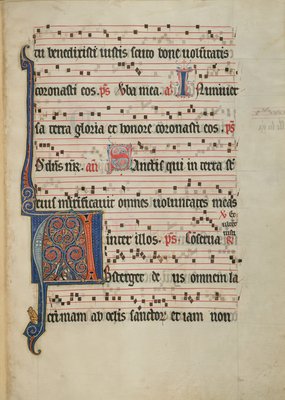 benedixisti iustis scuto bone uoluntatis
coronasti eos. ps mea. an In uniuer
sa terra gloria et honore coronasti eos. ps
an Sanctis qui in terra
eius mirificauit omnes uoluntates meas
inter illos. ps. Conserua
Absterget de us omnem la
crimam ab oclis sanctor et iam non